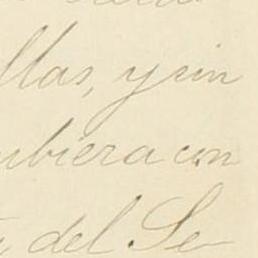 llas, y sin
ubiera con
del Se